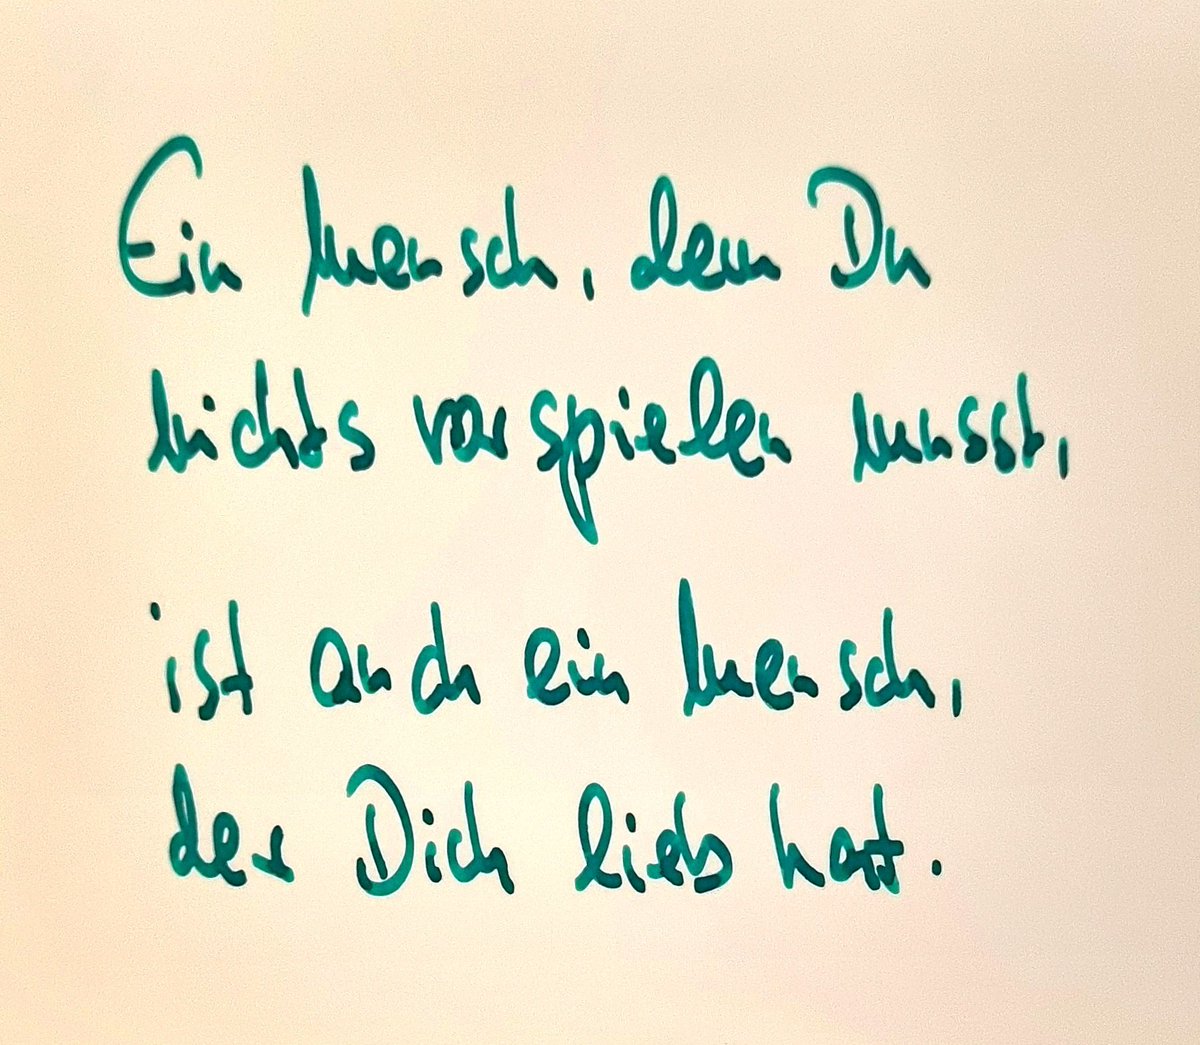 Ein Mensch, dem Du
nichts vorspielen musst,
ist auch ein Mensch,
der Dich lieb hat.